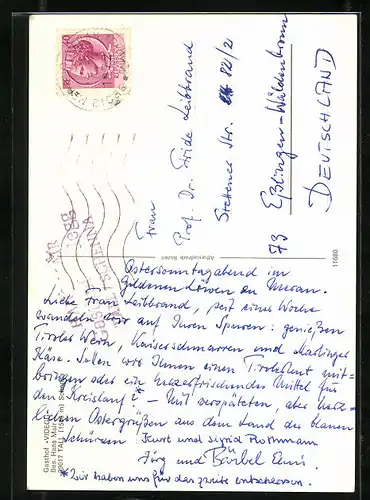 Frau
Prof. Dr. Frida Leibbrand
Stettener Str. 82/2
73 Eßlingen-Wäldenbronn
DEUTSCHLAND
Ostersonntagabend im
Goldenen Löwen zu Meran.
Liebe Frau Leibbrand, seit einer Woche
wandeln wir auf Ihren Spuren: genießen
Tiroler Wein, Kaiserschmarren und Marlinger
Käse. Sollen wir Ihnen einen Tirolerhut mit-
bringen oder ein herzerfrischendes Mittel für
den Kreislauf? – Mit verspäteten, aber herz-
lichen Ostergrüßen aus dem Land der blauen
Schürzen! Kurt und Sigrid Rothmann
Jörg und Bärbel
*Wir haben uns für das zweite entschieden.
Gasthof
Bes. Hans Mair
39017
Athesiadruck Bozen
11680